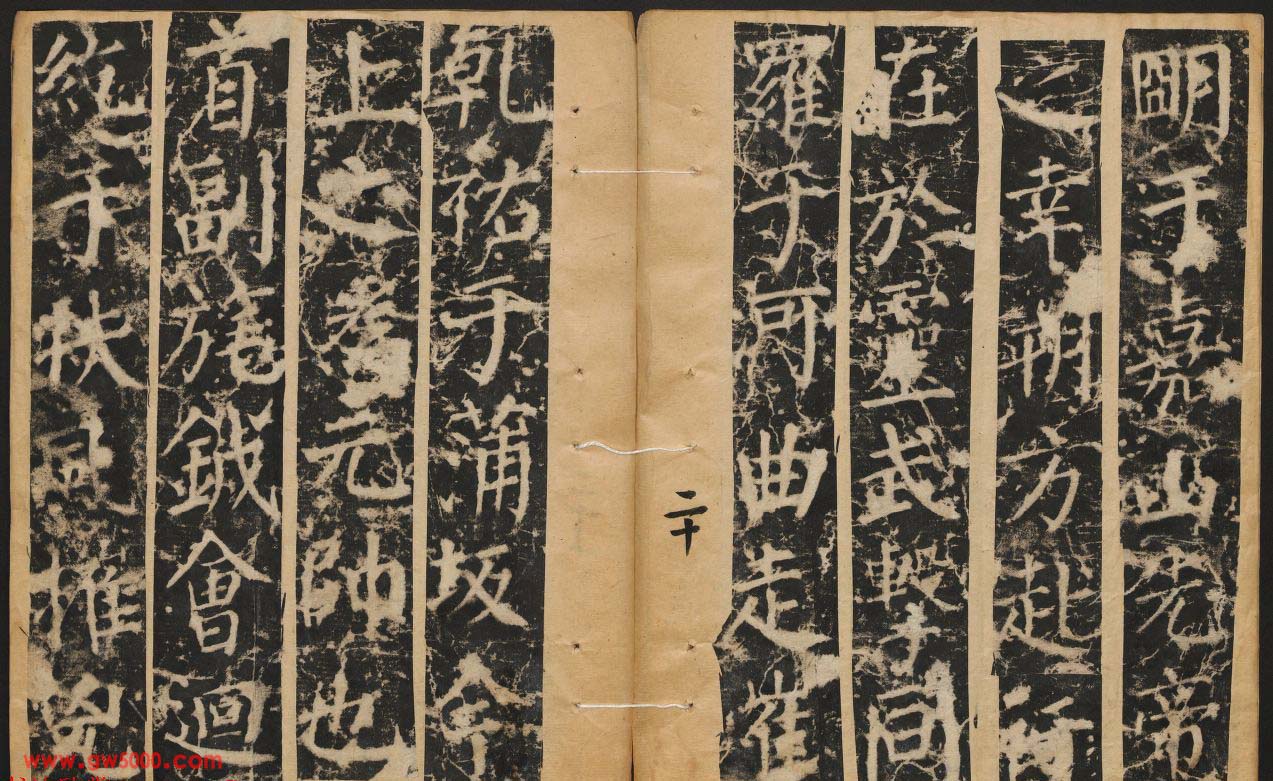 明于嘉山先帝
之幸朔方赴行
在於靈武擊同
羅于河曲走崔
二十
乾祐于蒲坂今
上之為元帥也
首副旄鉞會迴
紇于扶風摧
www.gw5000.com